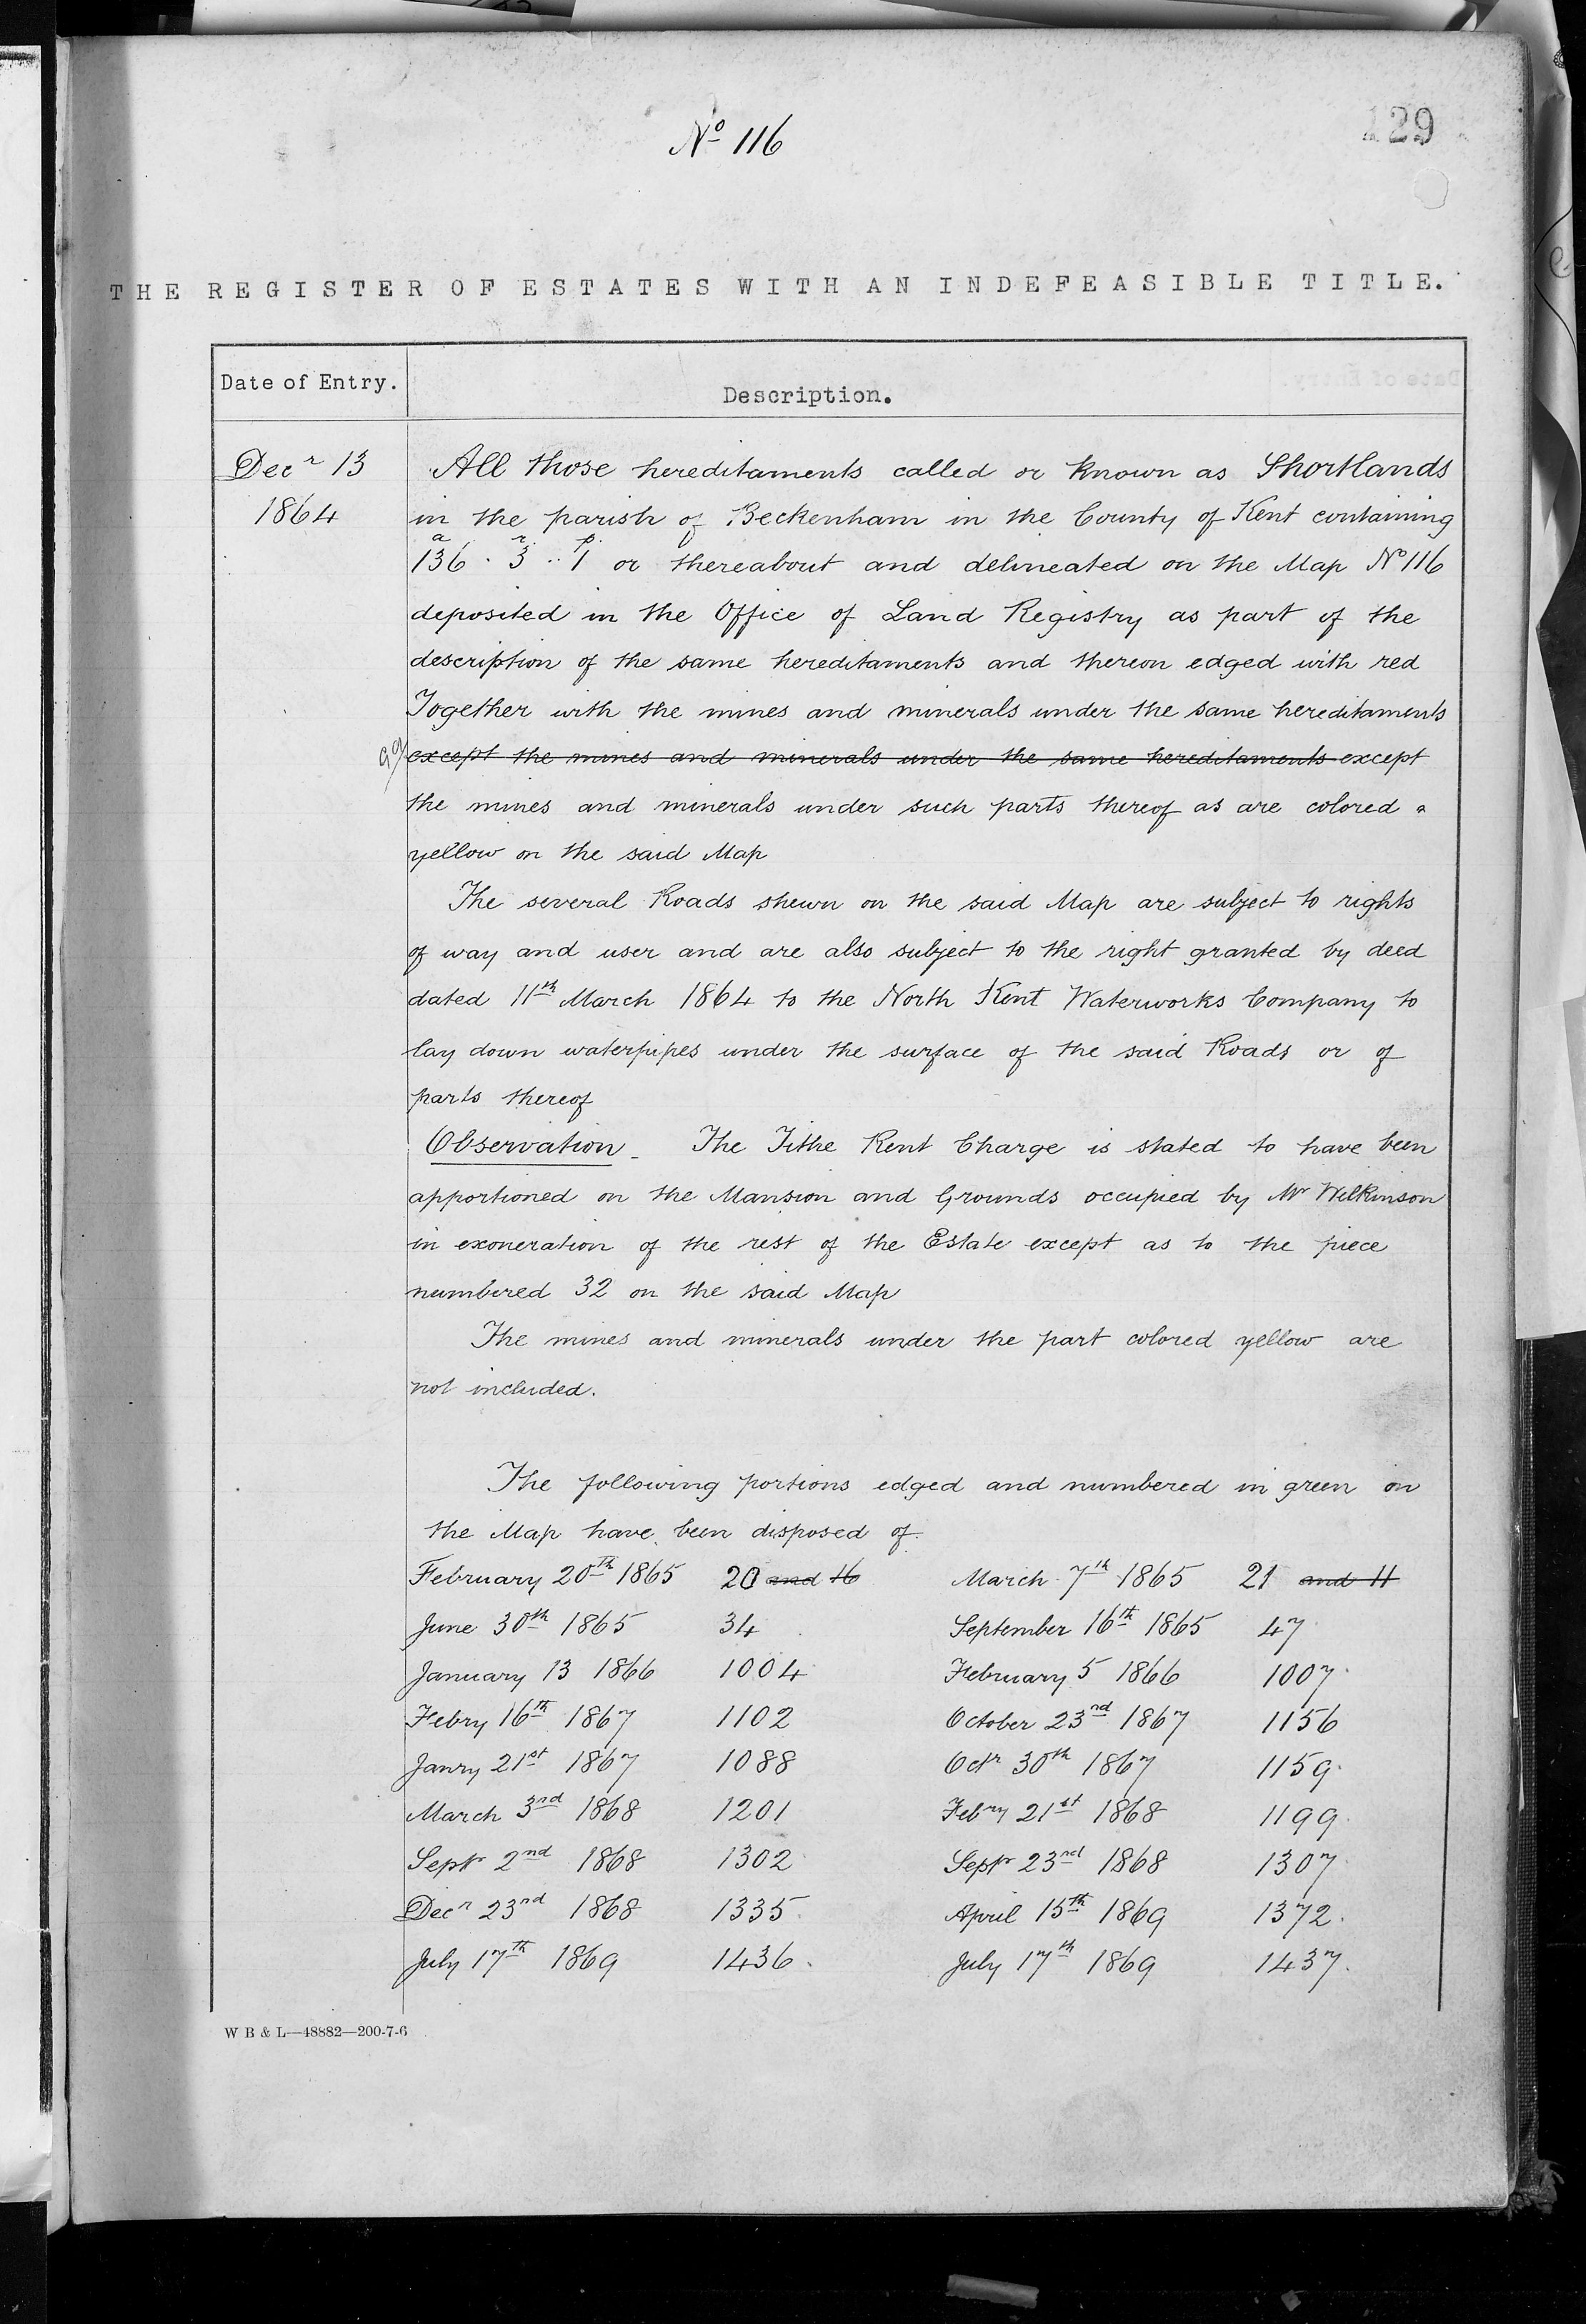 No 116
129
THE REGISTER OF ESTATES WITH AN INDEFEASIBLE TITLE.
Date of Entry.
Description.
Decr 13
1864
All those hereditaments called or known as Shortlands
in the parish of Beckenham in the County of Kent containing
a r. p.
136 . 3 .. 1 or thereabout and delineated on the Map No 116
deposited in the Office of Land Registry as part of the
description of the same hereditaments and thereon edged with red
Together with the mines and minerals under the same hereditaments
except the mines and minerals under the same hereditaments except
the mines and minerals under such parts thereof as are colored
yellow on the said Map
The several Roads shewn on the said Map are subject to rights
of way and user and are also subject to the right granted by deed
dated 11th March 1864 to the North Kent Waterworks Company to
lay down waterpipes under the surface of the said Roads or of
parts thereof
Observation - The Tithe Rent Charge is stated to have been
apportioned on the Mansion and Grounds occupied by Mr Wilkinson
in exoneration of the rest of the Estate except as to the piece
numbered 32 on the said Map
The mines and minerals under the part colored yellow are
not included.
The following portions edged and numbered in green on
the Map have been disposed of.
February 20th 1865 20 and 16 March 7th 1865 21 and 11
June 30th 1865 34 September 16th 1865 47
January 13 1866 1004 February 5 1866 1007
Febry 16th 1867 1102 October 23rd 1867 1156
Janry 21st 1867 1088 Octr 30th 1867 1159
March 3rd 1868 1201 Febry 21st 1868 1199
Septr 2nd 1868 1302 Septr 23rd 1868 1307
Decr 23rd 1868 1335 April 15th 1869 1372.
July 17th 1869 1436. July 17th 1869 1437.
W B & L—48882—200-7-6